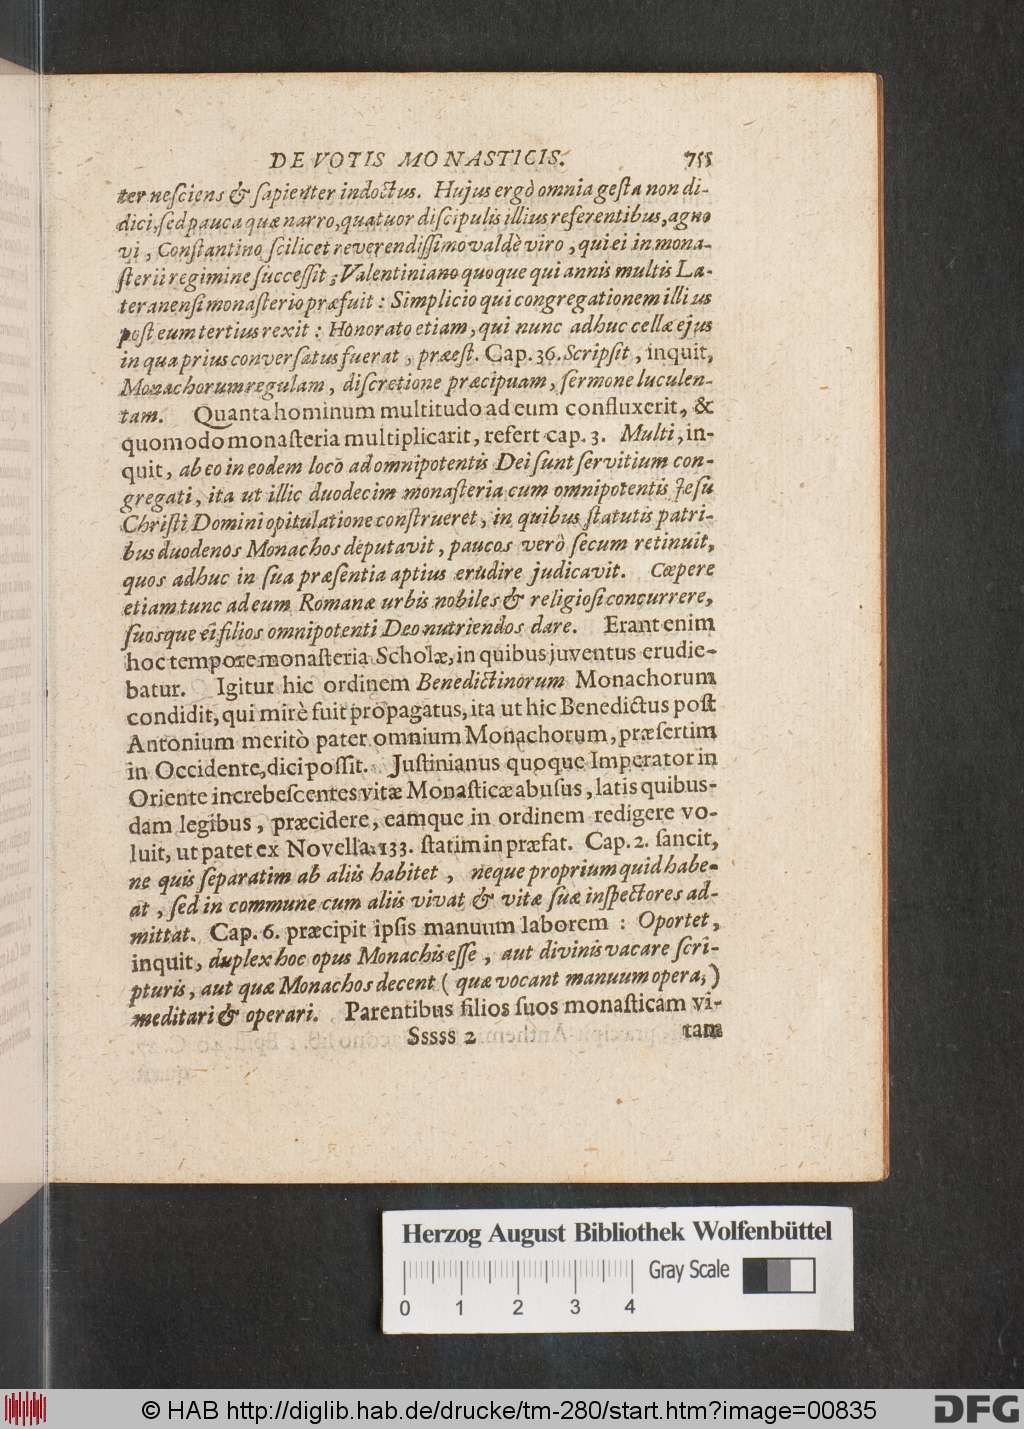 DE VOTIS MONASTICIS. 755
ter nesciens & sapienter indoctus. Hujus ergò omnia gesta non di-
dici, sed pauca quæ narro, quatuor discipulis illius referentibus, agno
vi, Constantino scilicet reverendissimo valdè viro, qui ei in mona-
sterii regimine successit; Valentiniano quoque qui annis multis La-
teranensi monasterio præfuit: Simplicio qui congregationem illius
post eum tertius rexit: Honorato etiam, qui nunc adhuc cellæ ejus
in qua prius conversatus fuerat, præest. Cap. 36. Scripsit, inquit,
Monachorum regulam, discretione præcipuam, sermone luculen-
tam. Quanta hominum multitudo ad eum confluxerit, &
quomodo monasteria multiplicarit, refert cap. 3. Multi, in-
quit, ab eo in eodem loco ad omnipotentis Dei sunt servitium con-
gregati, ita ut illic duodecim monasteria cum omnipotentis Jesu
Christi Domini opitulatione construeret, in quibus statutis patri-
bus duodenos Monachos deputavit, paucos verò secum retinuit,
quos adhuc in sua præsentia aptius erudire judicavit. Cœpere
etiam tunc ad eum Romanæ urbis nobiles & religiosi concurrere,
suosque ei filios omnipotenti Deo nutriendos dare. Erant enim
hoc tempore monasteria Scholæ, in quibus juventus erudie-
batur. Igitur hic ordinem Benedictinorum Monachorum
condidit, qui mirè fuit propagatus, ita ut hic Benedictus post
Antonium meritò pater omnium Monachorum, præsertim
in Occidente, dici possit. Justinianus quoque Imperator in
Oriente increbescentes vitæ Monasticæ abusus, latis quibus-
dam legibus, præcidere, eamque in ordinem redigere vo-
luit, ut patet ex Novella. 133. statim in præfat. Cap. 2. sancit,
ne quis separatim ab aliis habitet, neque proprium quid habe-
at, sed in commune cum aliis vivat & vitæ suæ inspectores ad-
mittat. Cap. 6. præcipit ipsis manuum laborem: Oportet,
inquit, duplex hoc opus Monachis esse, aut divinis vacare scri-
pturis, aut quæ Monachos decent (quæ vocant manuum opera,)
meditari & operari. Parentibus filios suos monasticam vi-
Sssss 2 tam
Herzog August Bibliothek Wolfenbüttel
Gray Scale
0 1 2 3 4
© HAB http://diglib.hab.de/drucke/tm-280/start.htm?image=00835
DFG